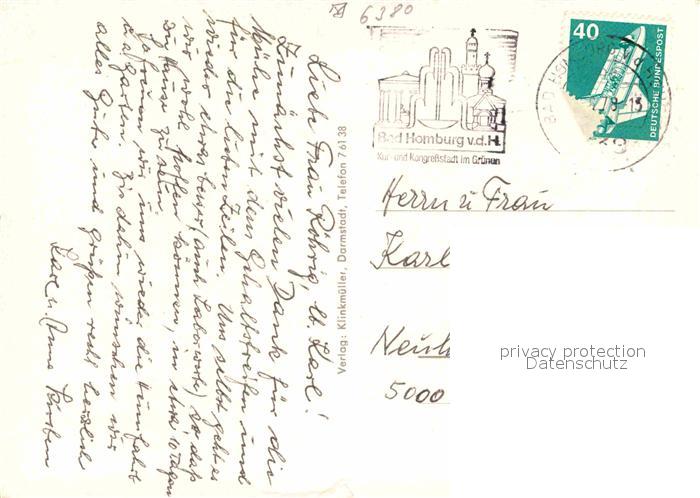 6380
Liebe Frau Röhrig, lb. Karl!
Zunächst vielen Dank für die
Mühe mit dem Gehaltstreifen und
für die lieben Zeilen. Uns selbst geht es
wieder etwas besser, (auch Laborwerte) so daß
wir wohl hoffen können, in etwa 10 Tagen
zu Hause zu sein.
Ja freuen wir uns wieder die
u. a. Garten. Bis dahin wünschen wir
alles Gute und grüßen recht herzlich
Karl u. Anna
Verlag: Klinkmüller, Darmstadt, Telefon 7 61 38
Bad Homburg v.d.H.
Kur- und Kongreßstadt im Grünen
40
DEUTSCHE BUNDESPOST
BAD HOMBURG
Herrn u Frau
Karl
5000
privacy protection
Datenschutz